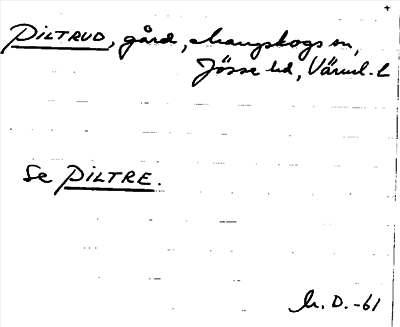 PILTRUD, gård, Mangskogs sn,
Jösse hd, Värml. L
Se PILTRE.
h. D. -61